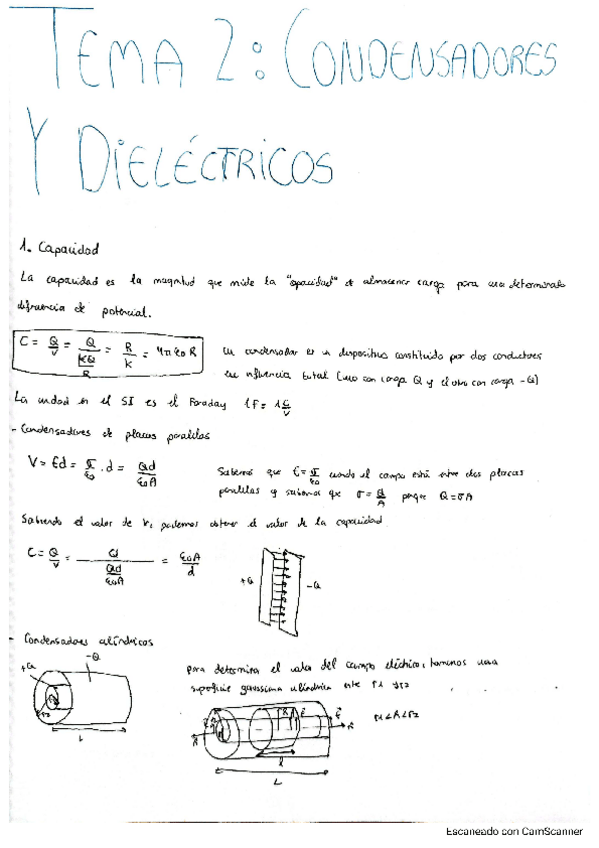 TEMA 2: CONDENSADORES
Y DIELÉCTRICOS
1. Capacidad
La capacidad es la magnitud que mide la "capacidad" de almacenar carga para una determinada
diferencia de potencial.
C = Q/V = Q/(KQ/R) = R/K = 4πε0R
Un condensador es un dispositivo constituido por dos conductores
en influencia total (uno con carga Q y el otro con carga -Q)
La unidad en el SI es el Faraday 1F = 1C/V
- Condensadores de placas paralelas
V = Ed = σ/ε0 · d = Qd/ε0A
Sabemos que E = σ/ε0 cuando el campo está entre dos placas
paralelas y sabemos que σ = Q/A porque Q = σA
Sabiendo el valor de V, podemos obtener el valor de la capacidad
C = Q/V = Q/(Qd/ε0A) = ε0A/d
+Q
-Q
- Condensadores cilíndricos
+Q
-Q
r2
L
para determinar el valor del campo eléctrico, tomamos una
superficie gaussiana cilíndrica entre r1 y r2
r1<R<r2
l
L
Escaneado con CamScanner